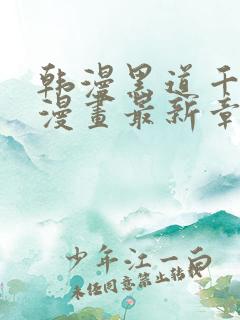 韩漫黑道千
漫畫最新章
少年江一白
未经同意禁止转载